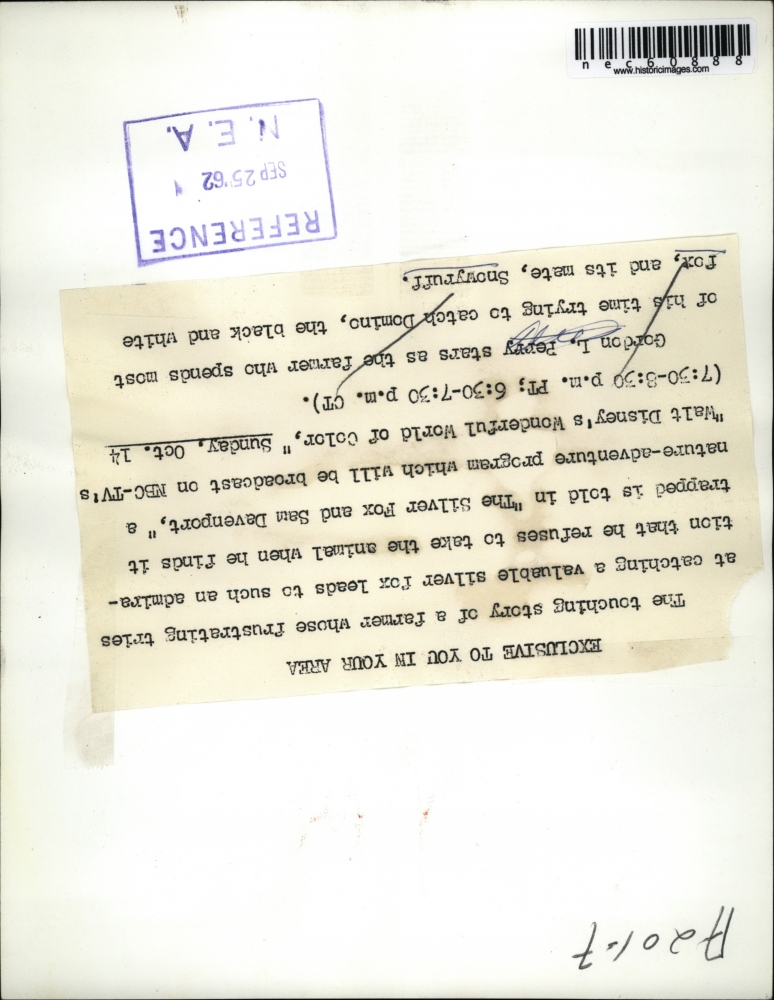 nec60888
www.historicimages.com
REFERENCE
SEP 25 '62
N. E. A.
EXCLUSIVE TO YOU IN YOUR AREA
The touching story of a farmer whose frustrating tries
at catching a valuable silver fox leads to such an admira-
tion that he refuses to take the animal when he finds it
trapped is told in "The Silver Fox and Sam Davenport," a
nature-adventure program which will be broadcast on NBC-TV's
"Walt Disney's Wonderful World of Color," Sunday, Oct. 14
(7:30-8:30 p.m. PT; 6:30-7:30 p.m. CT).
Gordon L Perry stars as the farmer who spends most
of his time trying to catch Domino, the black and white
fox, and its mate, Snowyruff.
A201-7